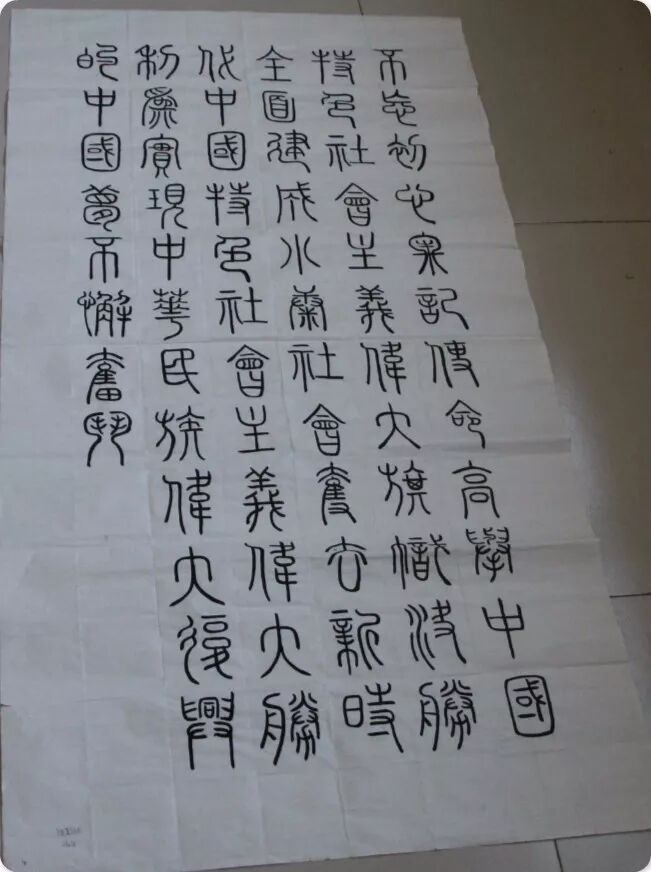 不忘初心牢記使命高舉中國
特色社會主義偉大旗幟決勝
全面建成小康社會奪去新時
代中國特色社會主義偉大勝
利為實現中華民族偉大復興
的中國夢不懈奮鬥